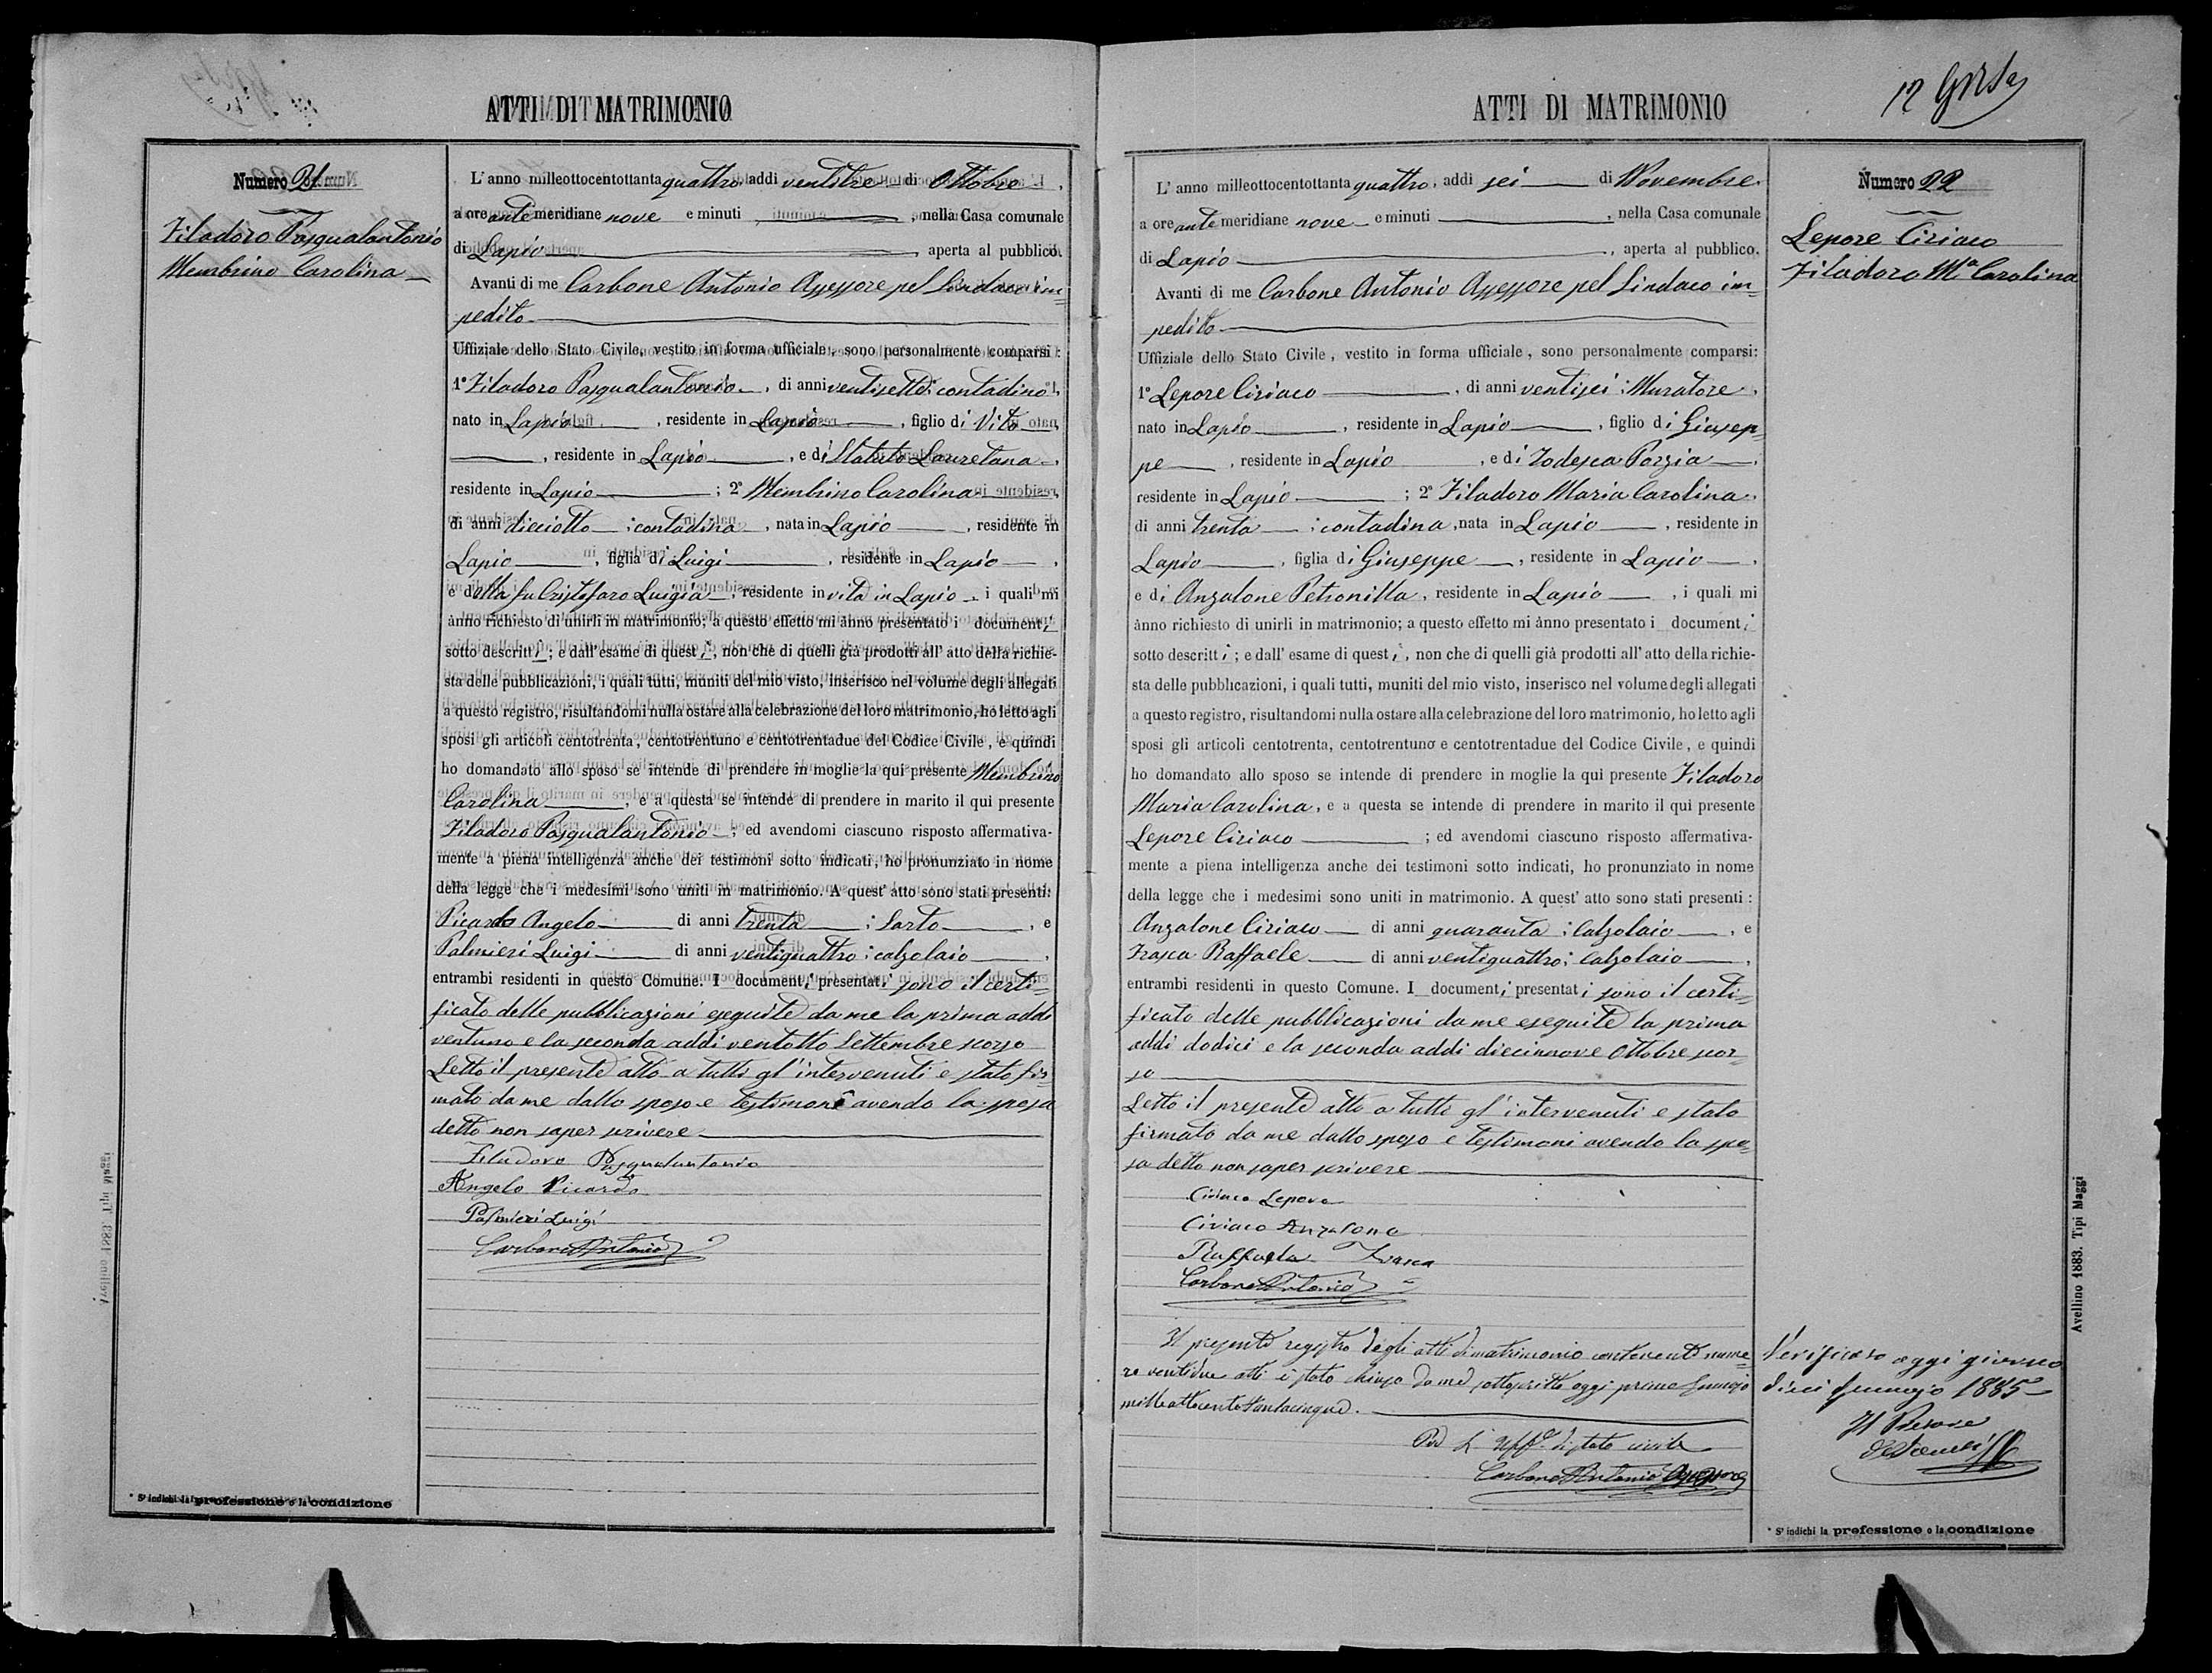 ATTI DI MATRIMONIO
Numero 21
Filadoro Pasqualantonio
Membrino Carolina
L'anno milleottocentottanta quattro, addì ventitre di Ottobre,
a ore ante meridiane nove e minuti , nella Casa comunale
di Lapio , aperta al pubblico.
Avanti di me Carbone Antonio Assessore pel Sindaco im=
pedito
Uffiziale dello Stato Civile, vestito in forma ufficiale, sono personalmente comparsi:
1° Filadoro Pasqualantonio, di anni ventisette; contadino,
nato in Lapio, residente in Lapio, figlio di Vito,
, residente in Lapio, e di Statuto Lauretana,
residente in Lapio; 2° Membrino Carolina,
di anni dieciotto; contadina, nata in Lapio, residente in
Lapio, figlia di Luigi, residente in Lapio,
e della fu Cristofaro Luigia, residente in vita in Lapio, i quali mi
ànno richiesto di unirli in matrimonio; a questo effetto mi ànno presentato i documenti
sotto descritti; e dall'esame di questi, non che di quelli già prodotti all'atto della richie-
sta delle pubblicazioni, i quali tutti, muniti del mio visto, inserisco nel volume degli allegati
a questo registro, risultandomi nulla ostare alla celebrazione del loro matrimonio, ho letto agli
sposi gli articoli centotrenta, centotrentuno e centotrentadue del Codice Civile, e quindi
ho domandato allo sposo se intende di prendere in moglie la qui presente Membrino
Carolina, e a questa se intende di prendere in marito il qui presente
Filadoro Pasqualantonio; ed avendomi ciascuno risposto affermativa-
mente a piena intelligenza anche dei testimoni sotto indicati, ho pronunziato in nome
della legge che i medesimi sono uniti in matrimonio. A quest'atto sono stati presenti:
Picardo Angelo di anni trenta; Sarto, e
Palmieri Luigi di anni ventiquattro; calzolaio,
entrambi residenti in questo Comune. I documenti presentati sono il certi=
ficato delle pubblicazioni eseguite da me la prima addì
ventuno e la seconda addì ventotto Settembre scorso
Letto il presente atto a tutti gl'intervenuti e stato fir=
mato da me dallo sposo e testimoni avendo la sposa
detto non saper scrivere
Filadoro Pasqualantonio
Angelo Picardo
Palmieri Luigi
Carbone Antonio
* S'indichi la professione o la condizione
ATTI DI MATRIMONIO
12
Numero 22
Lepore Ciriaco
Filadoro Mª Carolina
L'anno milleottocentottanta quattro, addì sei di Novembre,
a ore ante meridiane nove e minuti , nella Casa comunale
di Lapio, aperta al pubblico.
Avanti di me Carbone Antonio Assessore pel Sindaco im=
pedito
Uffiziale dello Stato Civile, vestito in forma ufficiale, sono personalmente comparsi:
1° Lepore Ciriaco, di anni ventisei; Muratore,
nato in Lapio, residente in Lapio, figlio di Giusep=
pe, residente in Lapio, e di Todesca Porzia,
residente in Lapio; 2° Filadoro Maria Carolina,
di anni trenta; contadina, nata in Lapio, residente in
Lapio, figlia di Giuseppe, residente in Lapio,
e di Anzalone Petronilla, residente in Lapio, i quali mi
ànno richiesto di unirli in matrimonio; a questo effetto mi ànno presentato i documenti
sotto descritti; e dall'esame di questi, non che di quelli già prodotti all'atto della richie-
sta delle pubblicazioni, i quali tutti, muniti del mio visto, inserisco nel volume degli allegati
a questo registro, risultandomi nulla ostare alla celebrazione del loro matrimonio, ho letto agli
sposi gli articoli centotrenta, centotrentuno e centotrentadue del Codice Civile, e quindi
ho domandato allo sposo se intende di prendere in moglie la qui presente Filadoro
Maria Carolina, e a questa se intende di prendere in marito il qui presente
Lepore Ciriaco; ed avendomi ciascuno risposto affermativa-
mente a piena intelligenza anche dei testimoni sotto indicati, ho pronunziato in nome
della legge che i medesimi sono uniti in matrimonio. A quest'atto sono stati presenti:
Anzalone Ciriaco di anni quaranta; Calzolaio, e
Frasca Raffaele di anni ventiquattro; Calzolaio,
entrambi residenti in questo Comune. I documenti presentati sono il certi=
ficato delle pubblicazioni da me eseguite la prima
addì dodici e la seconda addì diecinnove Ottobre scor=
so
Letto il presente atto a tutti gl'intervenuti e stato
firmato da me dallo sposo e testimoni avendo la spo=
sa detto non saper scrivere
Ciriaco Lepore
Ciriaco Anzalone
Raffaele Frasca
Carbone Antonio
Il presente registro degli atti di matrimonio contenente nume=
ro ventidue atti è stato chiuso da me sottoscritto oggi primo Gennajo
milleottocentottantacinque.
Per l'Uffle di stato civile
Carbone Antonio Assessore
Verificato oggi giorno
dieci Gennajo 1885
Il Pretore
* S'indichi la professione o la condizione
Avellino 1883. Tipi Maggi